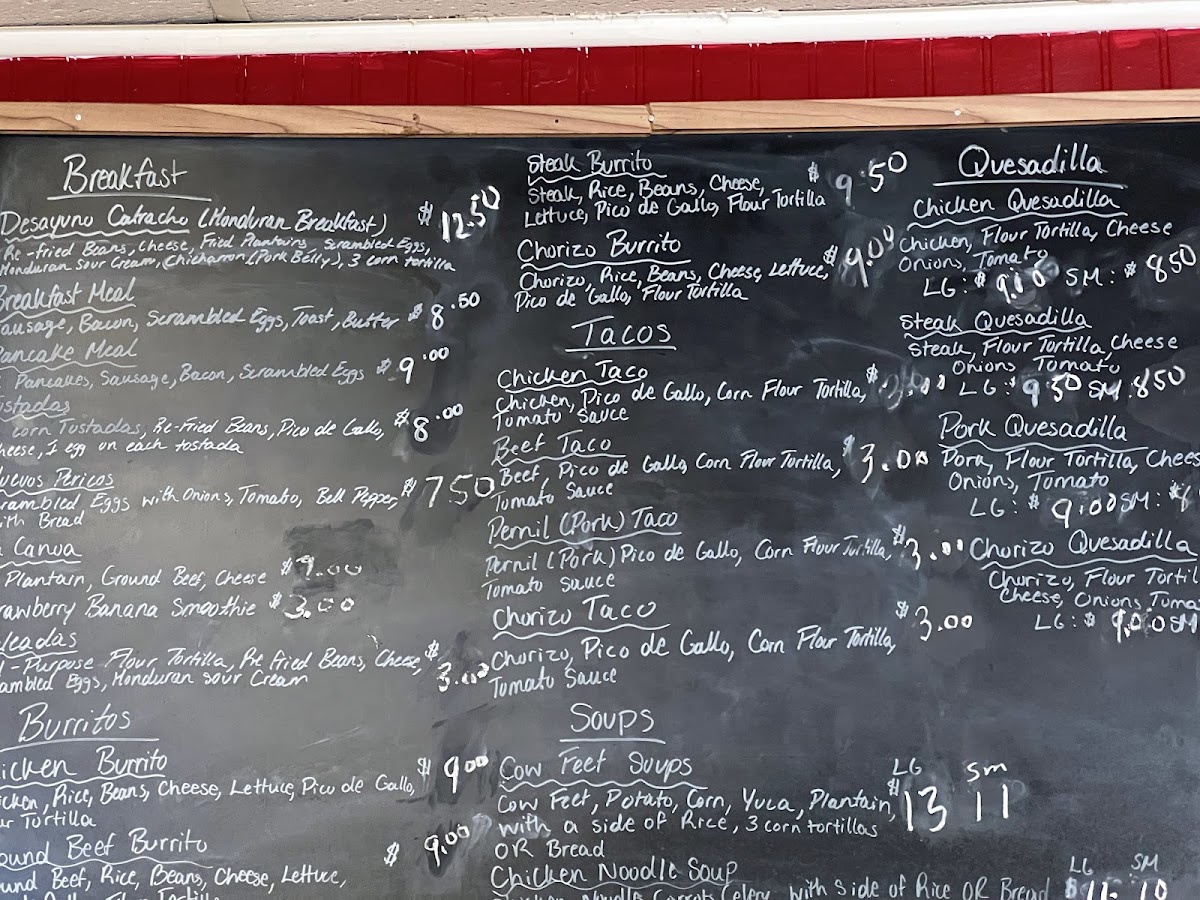 Breakfast
Desayuno Catracho (Honduran Breakfast) $12.50
Re-fried Beans, Cheese, Fried Plantains, Scrambled Eggs,
Honduran Sour Cream, Chicharron (Pork Belly), 3 corn tortilla
Breakfast Meal
Sausage, Bacon, Scrambled Eggs, Toast, Butter $8.50
Pancake Meal
Pancakes, Sausage, Bacon, Scrambled Eggs $9.00
ustadas
corn Tustadas, Re-Fried Beans, Pico de Gallo, $8.00
heese, 1 egg on each tostada
uevos Pericos
rambled Eggs with Onions, Tomato, Bell Pepper, $7.50
ith Bread
Canoa
Plantain, Ground Beef, Cheese $9.00
rawberry Banana Smoothie $3.00
leadas
l-Purpose Flour Tortilla, Re Fried Beans, Cheese, $3.00
ambled Eggs, Honduran Sour Cream
Burritos
icken Burrito
icken, Rice, Beans, Cheese, Lettuce, Pico de Gallo, $9.00
ur Tortilla
ound Beef Burrito $9.00
und Beef, Rice, Beans, Cheese, Lettuce,
Steak Burrito
Steak, Rice, Beans, Cheese, $9.50
Lettuce, Pico de Gallo, Flour Tortilla
Chorizo Burrito
Chorizo, Rice, Beans, Cheese, Lettuce, $9.00
Pico de Gallo, Flour Tortilla
Tacos
Chicken Taco
Chicken, Pico de Gallo, Corn Flour Tortilla,
Tomato Sauce
Beef Taco
Beef, Pico de Gallo, Corn Flour Tortilla, $3.00
Tomato Sauce
Pernil (Pork) Taco
Pernil (Pork) Pico de Gallo, Corn Flour Tortilla, $3.00
Tomato Sauce
Chorizo Taco
Chorizo, Pico de Gallo, Corn Flour Tortilla, $3.00
Tomato Sauce
Soups
Cow Feet Soups LG SM
Cow Feet, Potato, Corn, Yuca, Plantain, $13 11
with a side of Rice, 3 corn tortillas
OR Bread
Chicken Noodle Soup LG SM
Chicken Noodle Carrots Celery with side of Rice OR Bread $11. 10
Quesadilla
Chicken Quesadilla
Chicken, Flour Tortilla, Cheese
Onions, Tomato
LG: $9.00 SM: $8.50
Steak Quesadilla
Steak, Flour Tortilla, Cheese
Onions Tomato
LG: $9.50 SM: 8.50
Pork Quesadilla
Pork, Flour Tortilla, Chees
Onions, Tomato
LG: $9.00 SM: $8
Chorizo Quesadilla
Chorizo, Flour Tortil
Cheese, Onions, Toma
LG: $9.00 SM